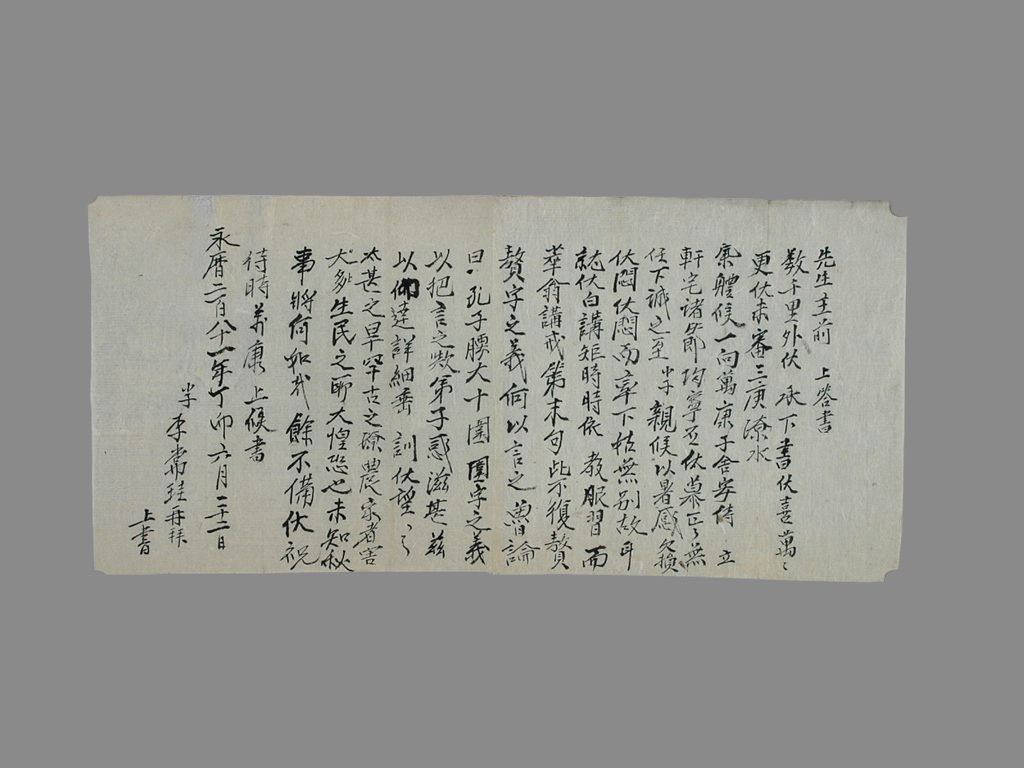 先生主前 上答書
數千里外伏 承下書伏喜萬〻
更伏未審三庚潦水
氣體候一向萬康子舍安侍 立
軒宅諸節均寧否伏慕區〻無
任下誠之至 親候以暑感欠損
伏悶伏悶而率下姑無別故耳
就伏白講矩時時依 教服習而
華翁講戒第末句此不復贅
贅字之義何以言之魯論
曰孔子腰大十圍圍字之義
以把言之歟弟子惑滋甚茲
以仰達詳細垂 訓伏望〻
太甚之旱罕古之潦農家者害
大多生民之聊大惶恐也未知秋
事將何如哉餘不備伏祝
待時萬康上候書
永曆二百八十一年丁卯六月二十二日
李常珪再拜
上書